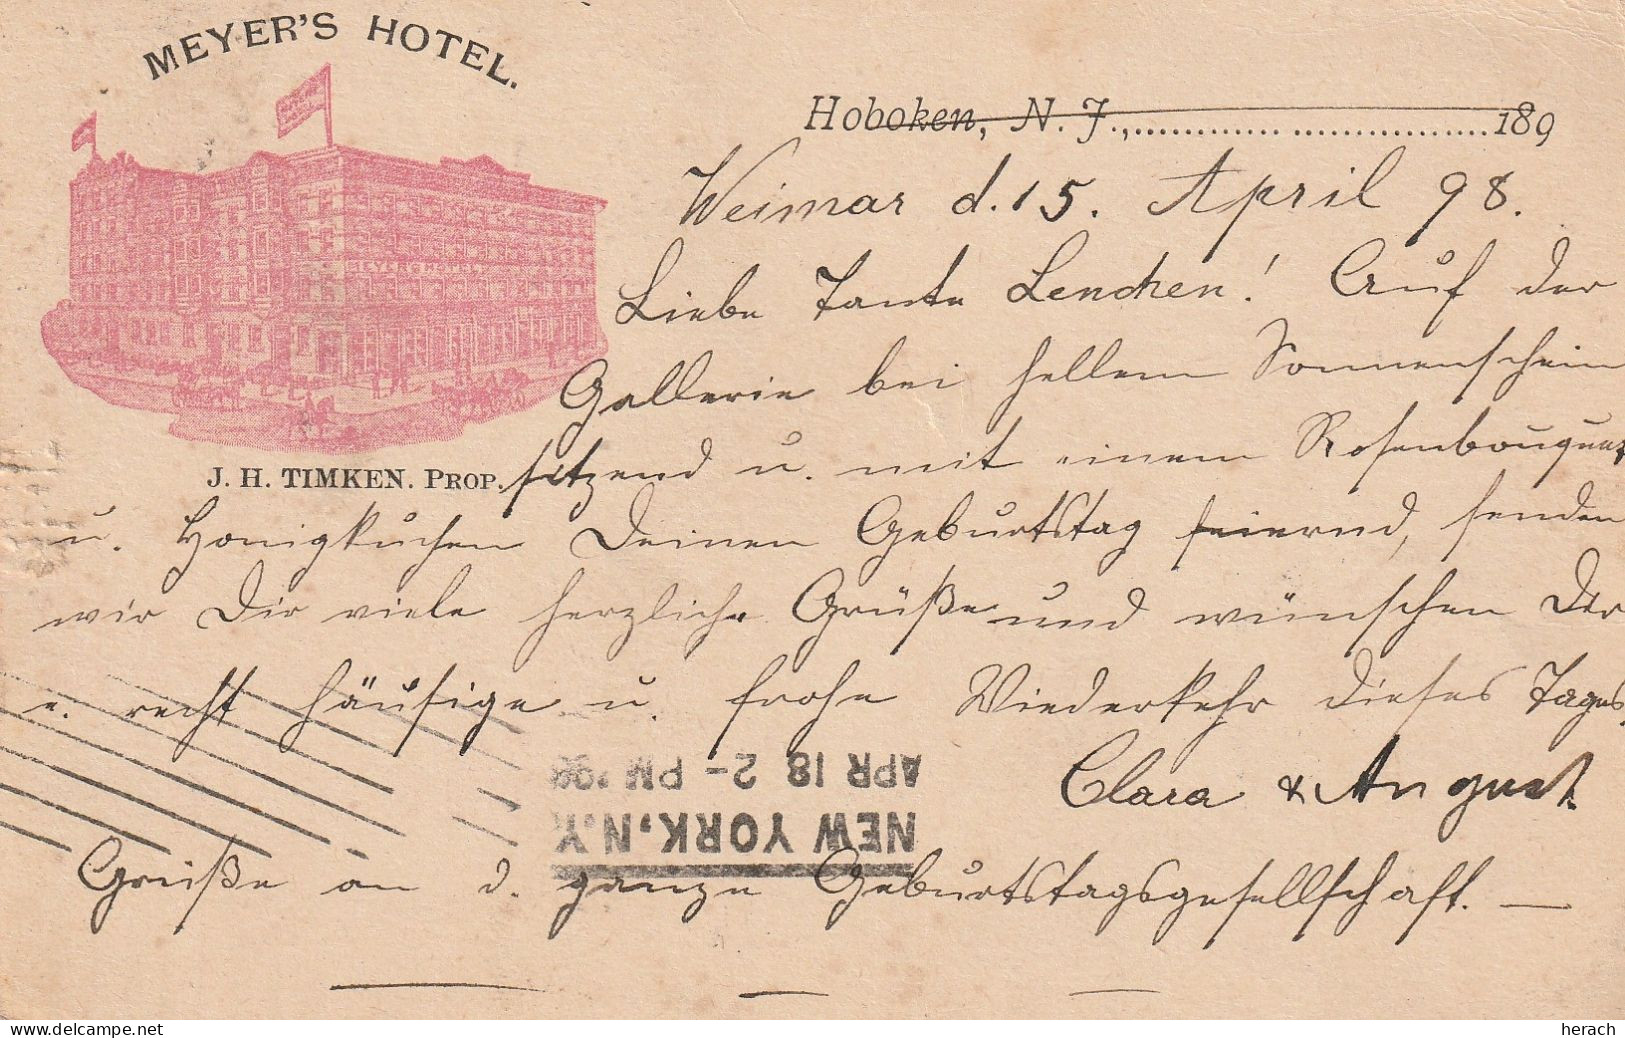 MEYER'S HOTEL.
Hoboken, N. J., 189
Weimar d. 15. April 98.
Liebe Tante Lenchen! Auf der
Gallerie bei hellem Sonnenschein
MEYER'S HOTEL
J. H. TIMKEN. PROP.
sitzend u. mit einem Rosenbouquet
u. Honigkuchen Deinen Geburtstag feiernd, senden
wir Dir viele herzliche Grüße und wünschen Dir
e. recht häufige u. frohe Wiederkehr dieses Tages.
Clara & August.
APR 18 2-PM '98
NEW YORK, N.Y.
Grüße an d. ganze Geburtstagsgesellschaft. —
herach